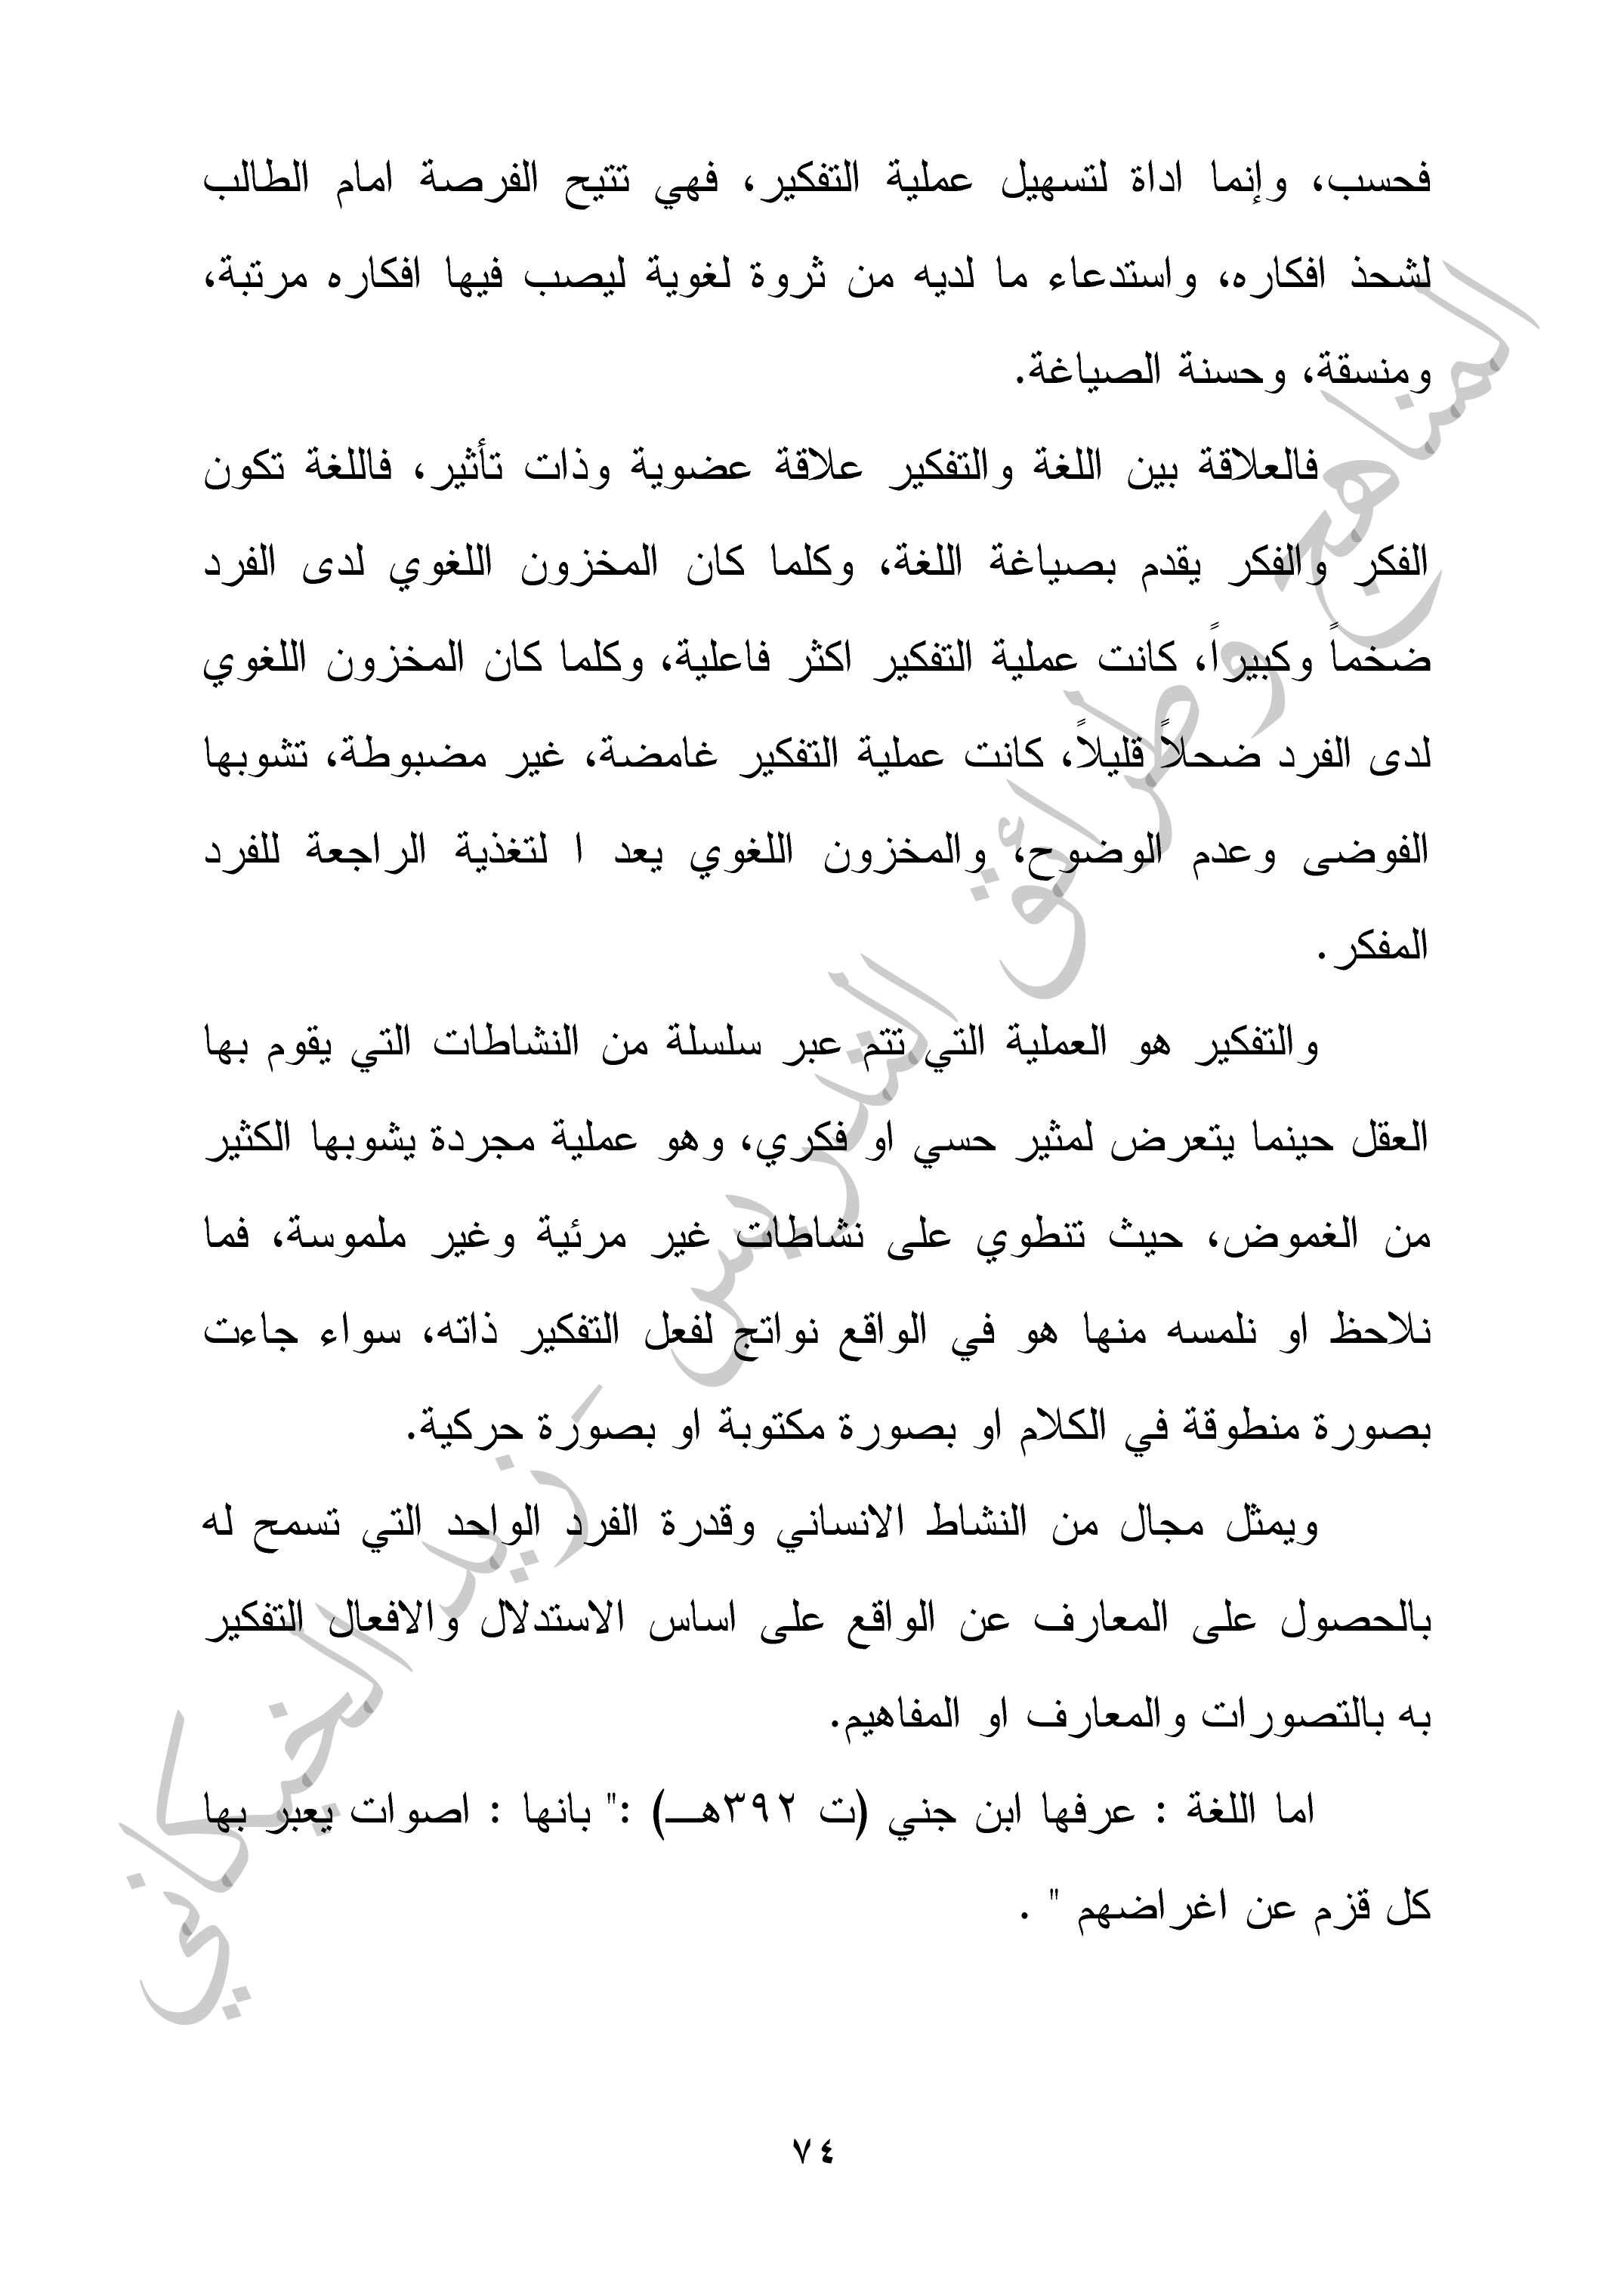 فحسب، وإنما اداة لتسهيل عملية التفكير، فهي تتيح الفرصة امام الطالب
لشحذ افكاره، واستدعاء ما لديه من ثروة لغوية ليصب فيها افكاره مرتبة،
ومنسقة، وحسنة الصياغة.
فالعلاقة بين اللغة والتفكير علاقة عضوية وذات تأثير، فاللغة تكون
الفكر والفكر يقدم بصياغة اللغة، وكلما كان المخزون اللغوي لدى الفرد
ضخماً وكبيراً، كانت عملية التفكير اكثر فاعلية، وكلما كان المخزون اللغوي
لدى الفرد ضحلاً قليلاً، كانت عملية التفكير غامضة، غير مضبوطة، تشوبها
الفوضى وعدم الوضوح، والمخزون اللغوي يعد ا لتغذية الراجعة للفرد
المفكر.
والتفكير هو العملية التي تتم عبر سلسلة من النشاطات التي يقوم بها
العقل حينما يتعرض لمثير حسي او فكري، وهو عملية مجردة يشوبها الكثير
من الغموض، حيث تنطوي على نشاطات غير مرئية وغير ملموسة، فما
نلاحظ او نلمسه منها هو في الواقع نواتج لفعل التفكير ذاته، سواء جاءت
بصورة منطوقة في الكلام او بصورة مكتوبة او بصورة حركية.
ويمثل مجال من النشاط الانساني وقدرة الفرد الواحد التي تسمح له
بالحصول على المعارف عن الواقع على اساس الاستدلال والافعال التفكير
به بالتصورات والمعارف او المفاهيم.
اما اللغة : عرفها ابن جني (ت ٣٩٢هـــ) :" بانها : اصوات يعبر بها
كل قزم عن اغراضهم " .
٧٤
المناهج وطرائق التدريس - زيد الخيكاني